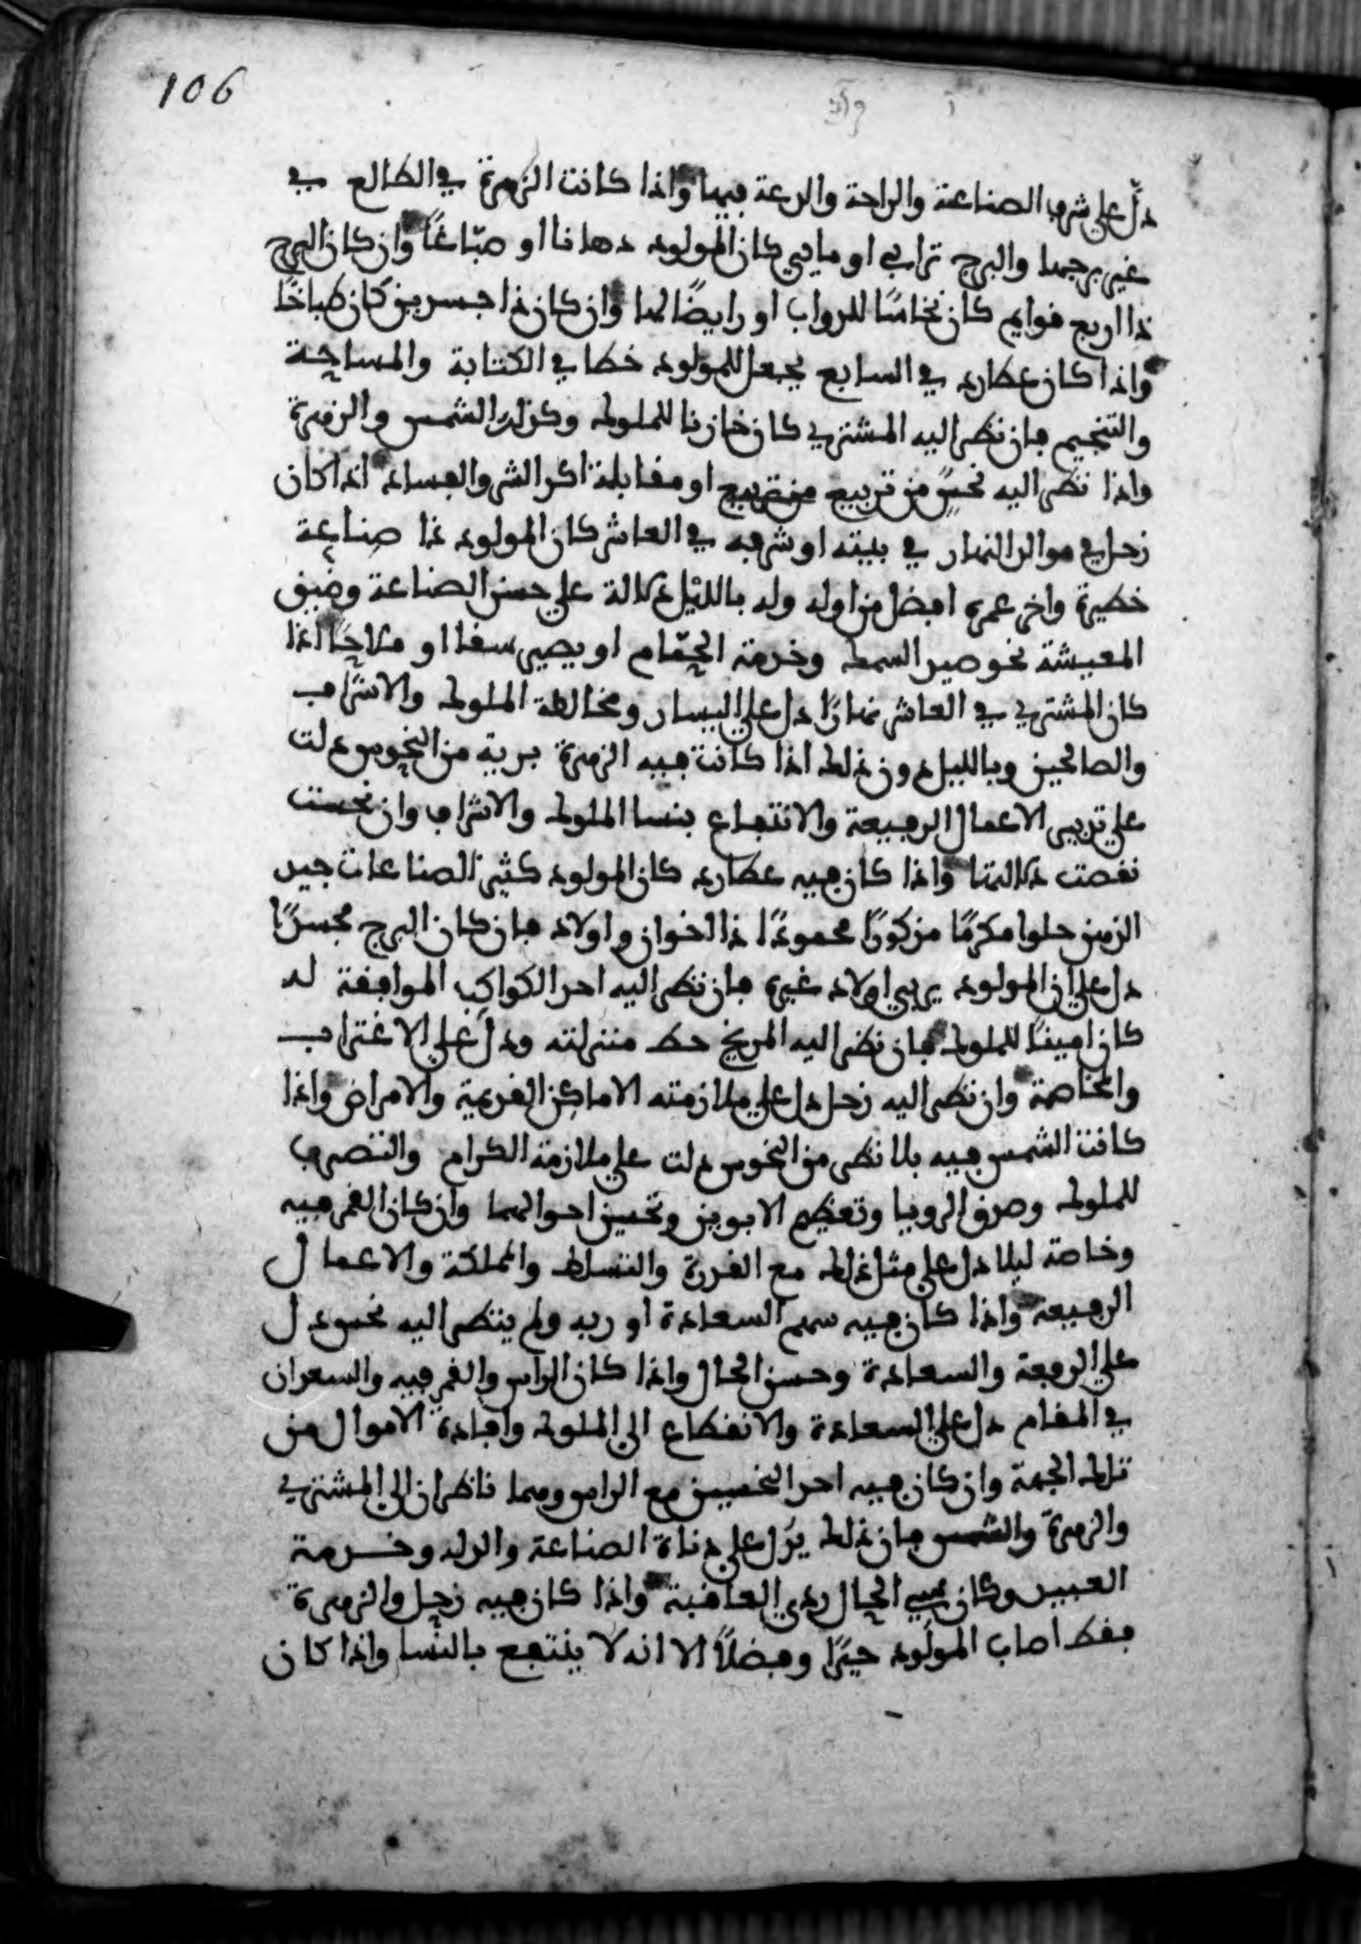 106
دلّ على شرف الصناعة والراحة والدعة فيها واذا كانت الزهرة في الطالع في
غير برجها والبرج ترابي او مايي كان المولود دهانا او صبّاغًا وان كان البرج
ذا اربع قوايم كان نخاسًا للدواب او رايضًا لها وان كان ذا جسدين كان طباخًا
واذا كان عطارد في السابع يجعل للمولود حظا في الكتابة والمساحة
والتنجيم فان نظر اليه المشتري كان خازنا للملوك وكذلك الشمس والزهرة
واذا نظر اليه نحس من تربيع او مقابلة اكد الشر والفساد اذا كان
زحل في مواليد النهار في بيته او شرفه في العاشر كان المولود ذا صناعة
خطيرة واخر عمره افضل من اوله وله بالليل دلالة على حسن الصناعة وضيق
المعيشة نحو صيد السمك وخدمة الحمّام او يصير سقا او ملاحًا اذا
كان المشتري في العاشر نهارًا دل على اليسار ومخالطة الملوك والاشراف
والصالحين وبالليل دون ذلك اذا كانت فيه الزهرة برية من النحوس دلت
على تربي الاعمال الرفيعة والانتفاع بنسا الملوك والاشراف وان نحست
نقصت دلالتها واذا كان فيه عطارد كان المولود كثير الصناعات جيد
الذهن حلوا مكرمًا مذكورًا محمودًا ذا اخوان واولاد فان كان البرج مجسدًا
دل على ان المولود يربي اولاد غيره فان نظر اليه احد الكواكب الموافقة له
كان امينًا للملوك فان نظر اليه المريخ حط منزلته ودل على الاغتراب
والمخاصمة وان نظر اليه زحل دل على ملازمته الاماكن القديمة والامراض واذا
كانت الشمس فيه بلا نظر من النحوس دلت على ملازمة الكرام والتصرف
للملوك وصدق الرويا وتعظيم الابوين وتحسين احوالهما وان كان القمر فيه
وخاصة ليلا دل على مثل ذلك مع القدرة والتسلط والمملكة والاعمال
الرفيعة واذا كان فيه سهم السعادة او ربه ولم ينظر اليه نحوس دل
على الرفعة والسعادة وحسن الحال واذا كان الراس والقمر فيه والسعدان
في المقام دل على السعادة والانقطاع الى الملوك وافادة الاموال من
تلك الجهة وان كان فيه احد النحسين مع الراس وهما ناظران الى المشتري
والزهرة والشمس فان ذلك يدل على دناة الصناعة والولد وخدمة
العبيد وكان سيي الحال ردي العاقبة واذا كان فيه زحل والزهرة
فقط اصاب المولود خيرًا وفضلًا الا انه لا ينتفع بالنسا واذا كان